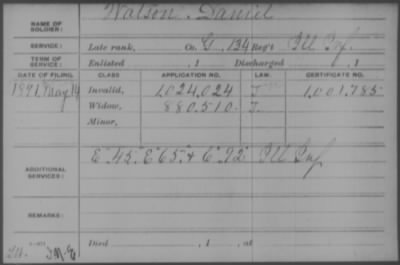 Watson, Daniel
NAME OF SOLDIER:
SERVICE: Late rank, Co. G, 134 Reg't Ill Inf.
TERM OF SERVICE: Enlisted , 1 Discharged , 1
DATE OF FILING. CLASS. APPLICATION NO. LAW. CERTIFICATE NO.
1891 May 14 Invalid, 1,024,024 J 1,001,785
Widow, 880,510 J.
Minor,
ADDITIONAL SERVICES: E 45, E 65, & C 92 Ill Inf
REMARKS:
Died , 1 , at